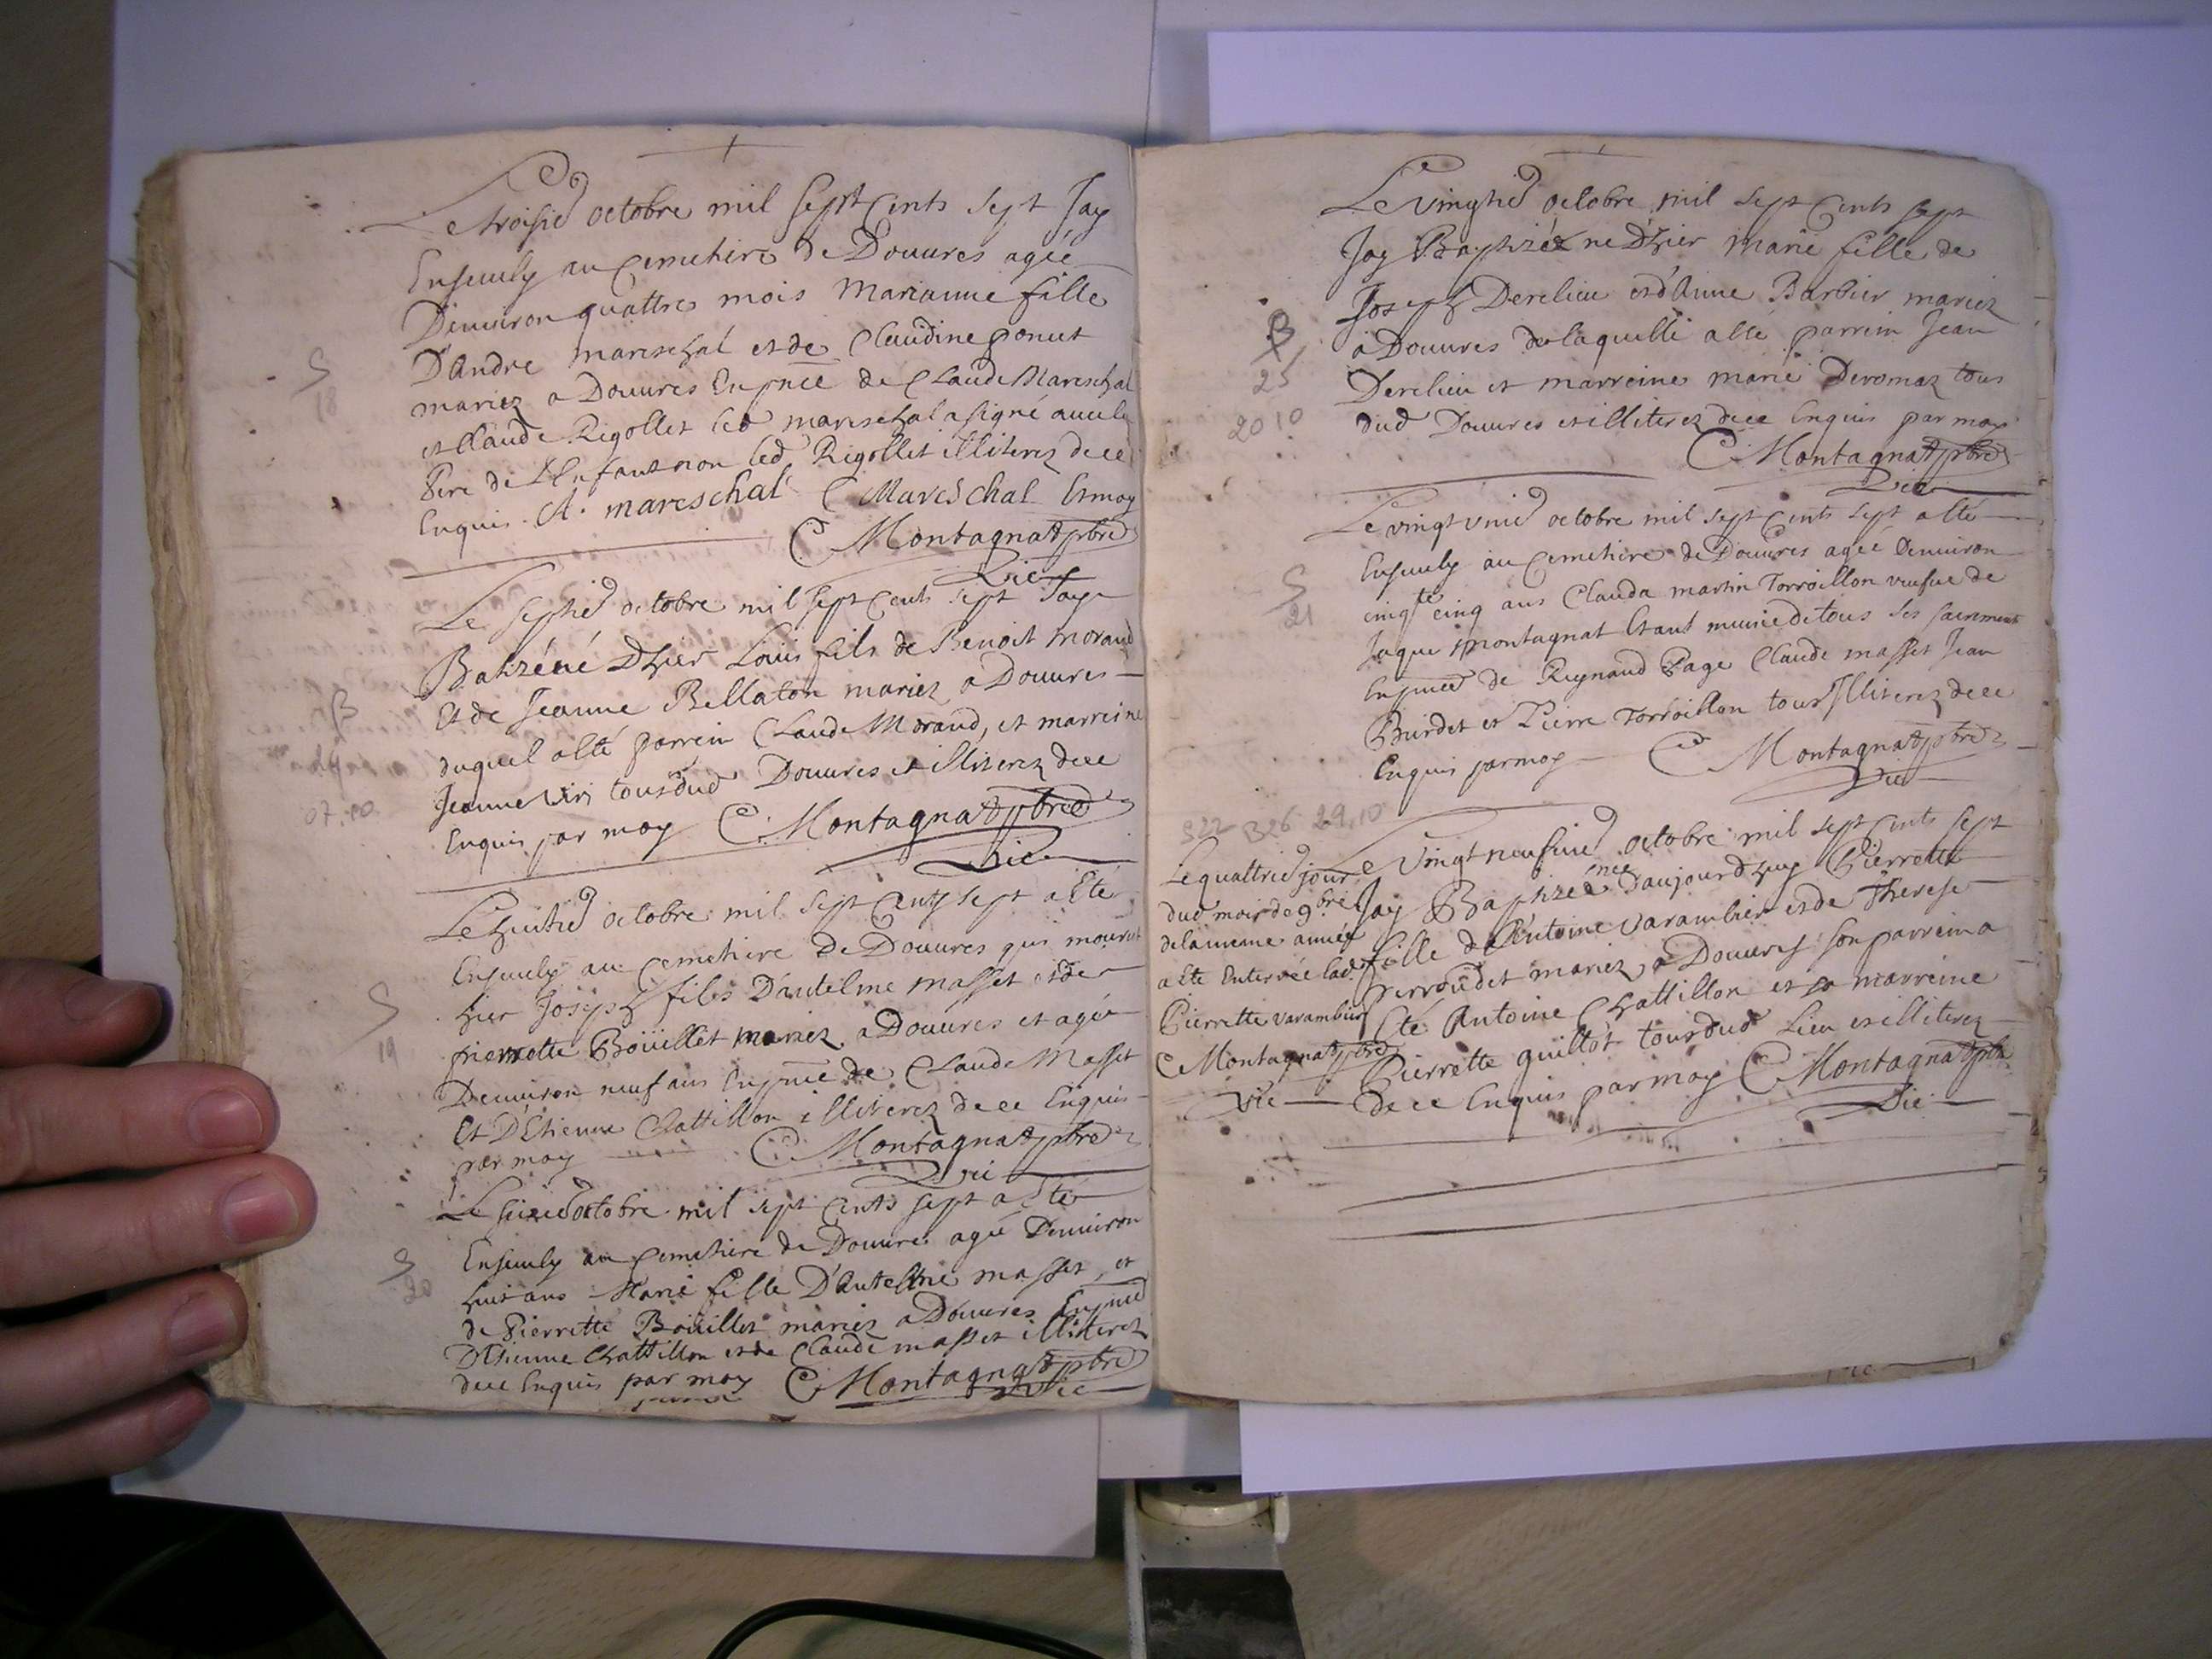 Le troisie octobre mil sept cents sept Jay
Enseuely au cemetiere de Douures agée
Denuiron quattre mois Marianne fille
D'Andre mareschal et de Claudine ponut
mariez a Douures En pnce de Claude Mareschal
S
18
et Claude Rigollet led mareschal a signé auec le
Pere de L'Enfant non led Rigollet illiterez de ce
Enquis. A. mareschal C Mareschal Et moy
C Montagnat pbre
Vic
Le septie octobre mil sept cents sept Jay
Batizé né D'hier Louis fils de Benoist morand
Et de Jeanne Bellaton mariez a Douures
B
07.10
duquel a esté parrein Claude Morand, et marreine
Jeanne tous dud Douures et illiterez de ce
Enquis par moy C. Montagnat pbre
Vic
Le huitie octobre mil sept cents sept a esté
Enseuely au cemetiere de Douures qui mourut
hier Joseph fils D'antelme masset et de
S
19
pierrette Boüillet mariez a Douures et agée
Denuiron neuf ans En pnce de Claude Masset
Et D'Etienne Chattillon illiterez de ce Enquis
par moy C Montagnat pbre
Vic
Le octobre mil sept cents sept a esté
Enseuely au cemetiere de Douure agée Denuiron
S
20
huit ans Marie fille D'Antelme masset, et
de Pierrette Boüillet mariez a Douures En pnce
D'Etienne Chattillon et de Claude masset illiterez
de ce Enquis par moy C Montagnat pbre
Vic
Le vingtie octobre mil sept cents sept
Jay Baptizée née D'hier Marie fille de
Joseph Derelieu et d'Anne Barbier mariez
B
25
20 10
a Douures de laquelle a esté parrein Jean
Derelieu et marreine marie Deromaz tous
dud Douures et illiterez de ce Enquis par moy
C Montagnat pbre
Vic
Le vingt unie octobre mil sept cents sept a esté
Enseuely au cemetiere de Douures agée Denuiron
S
21
cinqte cinq ans Clauda martin Torroillon veufue de
Jaque montagnat Etant munie de tous ses sacrements
En pnce de Reynaud Page Claude masset Jean
Burdet et Pierre Torroillon tous Illiterez de ce
Enquis par moy C Montagnat pbre
Vic
S22 B26 29.10
Le vingt neufuie octobre mil sept cents sept
Jay Baptizée née d'aujourdhuy Pierrette
fille d'Antoine Varambier et de Therese
perroudet mariez, a Douures son parrein a
Eté Antoine Chattillon et sa marreine
Pierrette guillot tous dud Lieu et illiterez
de ce Enquis par moy C Montagnat pbre
Vic
Le quattrie jour
dud mois de 9bre
de la meme année
a ete Enterrée lade
Pierrette varambier
C Montagnat pbre
Vic